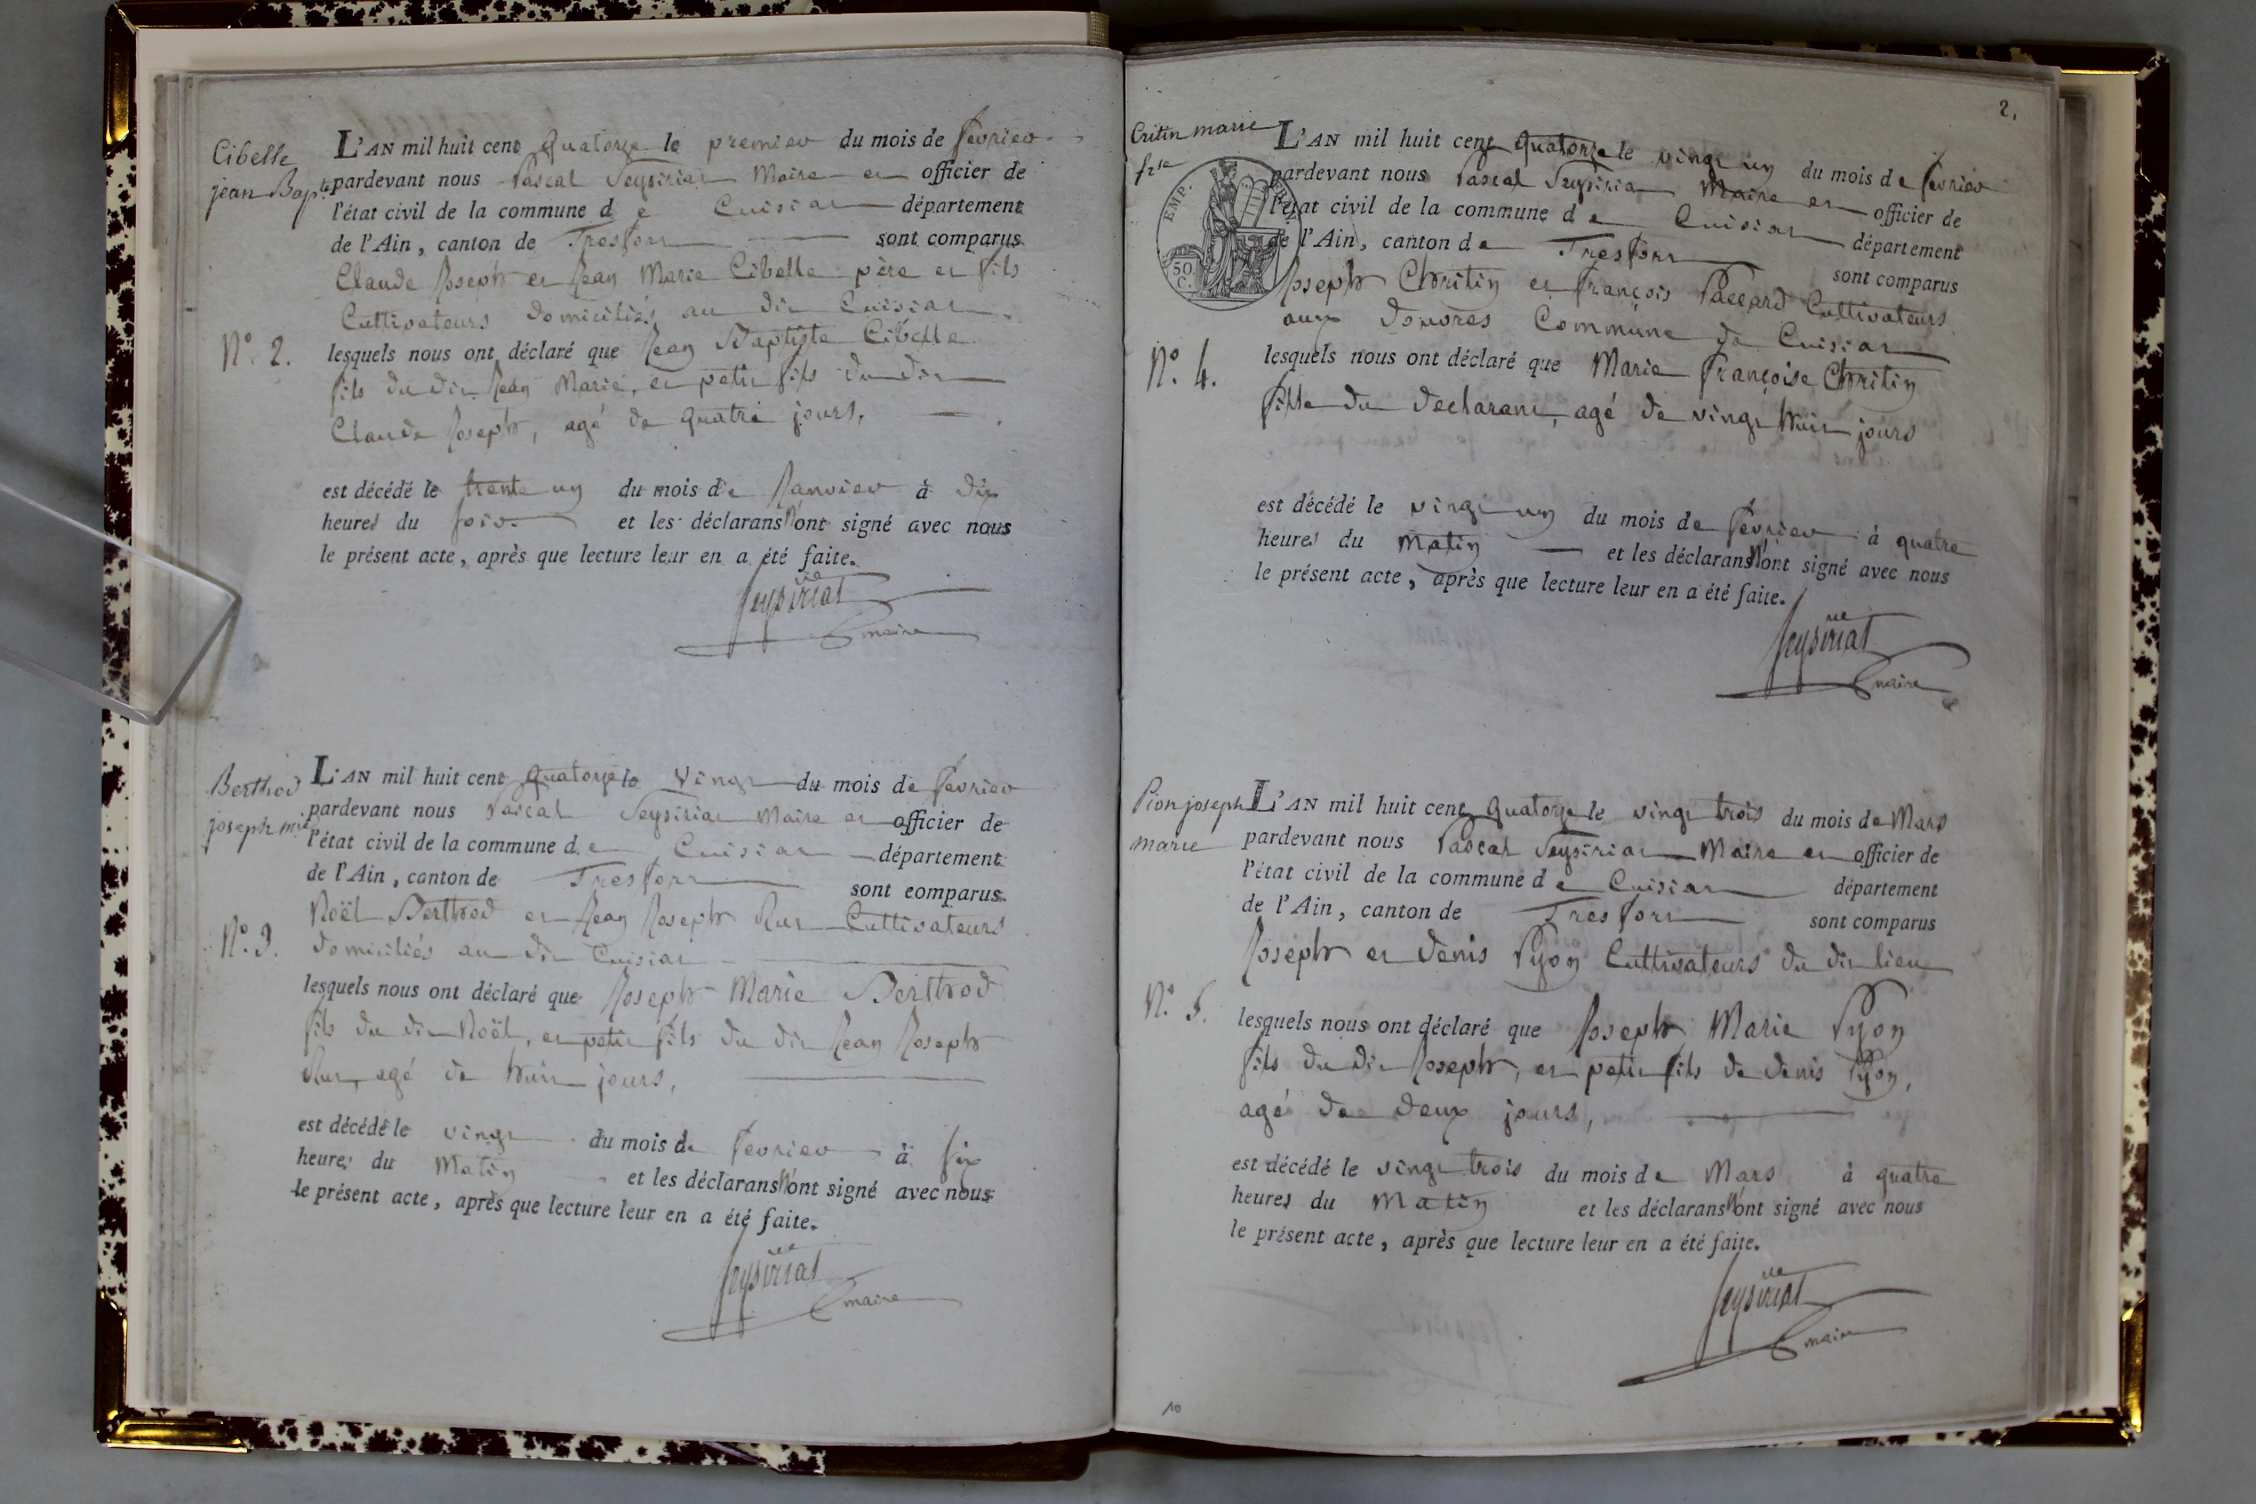 Cibelle
jean Bapte
N.° 2.
L'AN mil huit cent quatorze le premier du mois de fevrier
pardevant nous Pascal Seysiriat Maire et officier de
l'état civil de la commune de Cuisiat département
de l'Ain, canton de Treffort sont comparus
Claude Joseph et Jean Marie Cibelle père et fils
Cultivateurs domiciliés au dit Cuisiat
lesquels nous ont déclaré que Jean Baptiste Cibelle
fils du dit Jean Marie, et petit fils du dit
Claude Joseph, agé de quatre jours,
est décédé le trente un du mois de Janvier à dix
heures du soir et les déclarans n'ont signé avec nous
le présent acte, après que lecture leur en a été faite.
Seysiriat
maire
Berthod
joseph mie
N.° 3.
L'AN mil huit cent quatorze le vingt du mois de fevrier
pardevant nous Pascal Seysiriat Maire et officier de
l'état civil de la commune de Cuisiat département
de l'Ain, canton de Treffort sont comparus
Noël Berthod et Jean Joseph Rut Cultivateurs
domiciliés au dit Cuisiat
lesquels nous ont déclaré que Joseph Marie Berthod
fils du dit Noël, et petit fils du dit Jean Joseph
Rut, agé de huit jours,
est décédé le vingt du mois de fevrier à six
heures du Matin et les déclarans n'ont signé avec nous
le présent acte, après que lecture leur en a été faite.
Seysiriat
maire
2.
Critin marie
fse
EMP. FRAN.
50
C.
N.° 4.
L'AN mil huit cent quatorze le vingt un du mois de fevrier
pardevant nous Pascal Seysiriat Maire et officier de
l'état civil de la commune de Cuisiat département
de l'Ain, canton de Treffort sont comparus
Joseph Chritin et françois Paccard Cultivateurs
aux donores Commune de Cuisiat
lesquels nous ont déclaré que Marie françoise Chritin
fille du declarant, agé de vingt huit jours
est décédé le vingt un du mois de fevrier à quatre
heures du Matin et les déclarans n'ont signé avec nous
le présent acte, après que lecture leur en a été faite.
Seysiriat
maire
Pion joseph
marie
N.° 5.
L'AN mil huit cent quatorze le vingt trois du mois de Mars
pardevant nous Pascal Seysiriat Maire et officier de
l'état civil de la commune de Cuisiat département
de l'Ain, canton de Treffort sont comparus
Joseph et denis Pyon Cultivateurs du dit lieu
lesquels nous ont déclaré que Joseph Marie Pyon
fils du dit Joseph, et petit fils de denis Pyon,
agé de deux jours,
est décédé le vingt trois du mois de Mars à quatre
heures du Matin et les déclarans n'ont signé avec nous
le présent acte, après que lecture leur en a été faite.
Seysiriat
maire
10